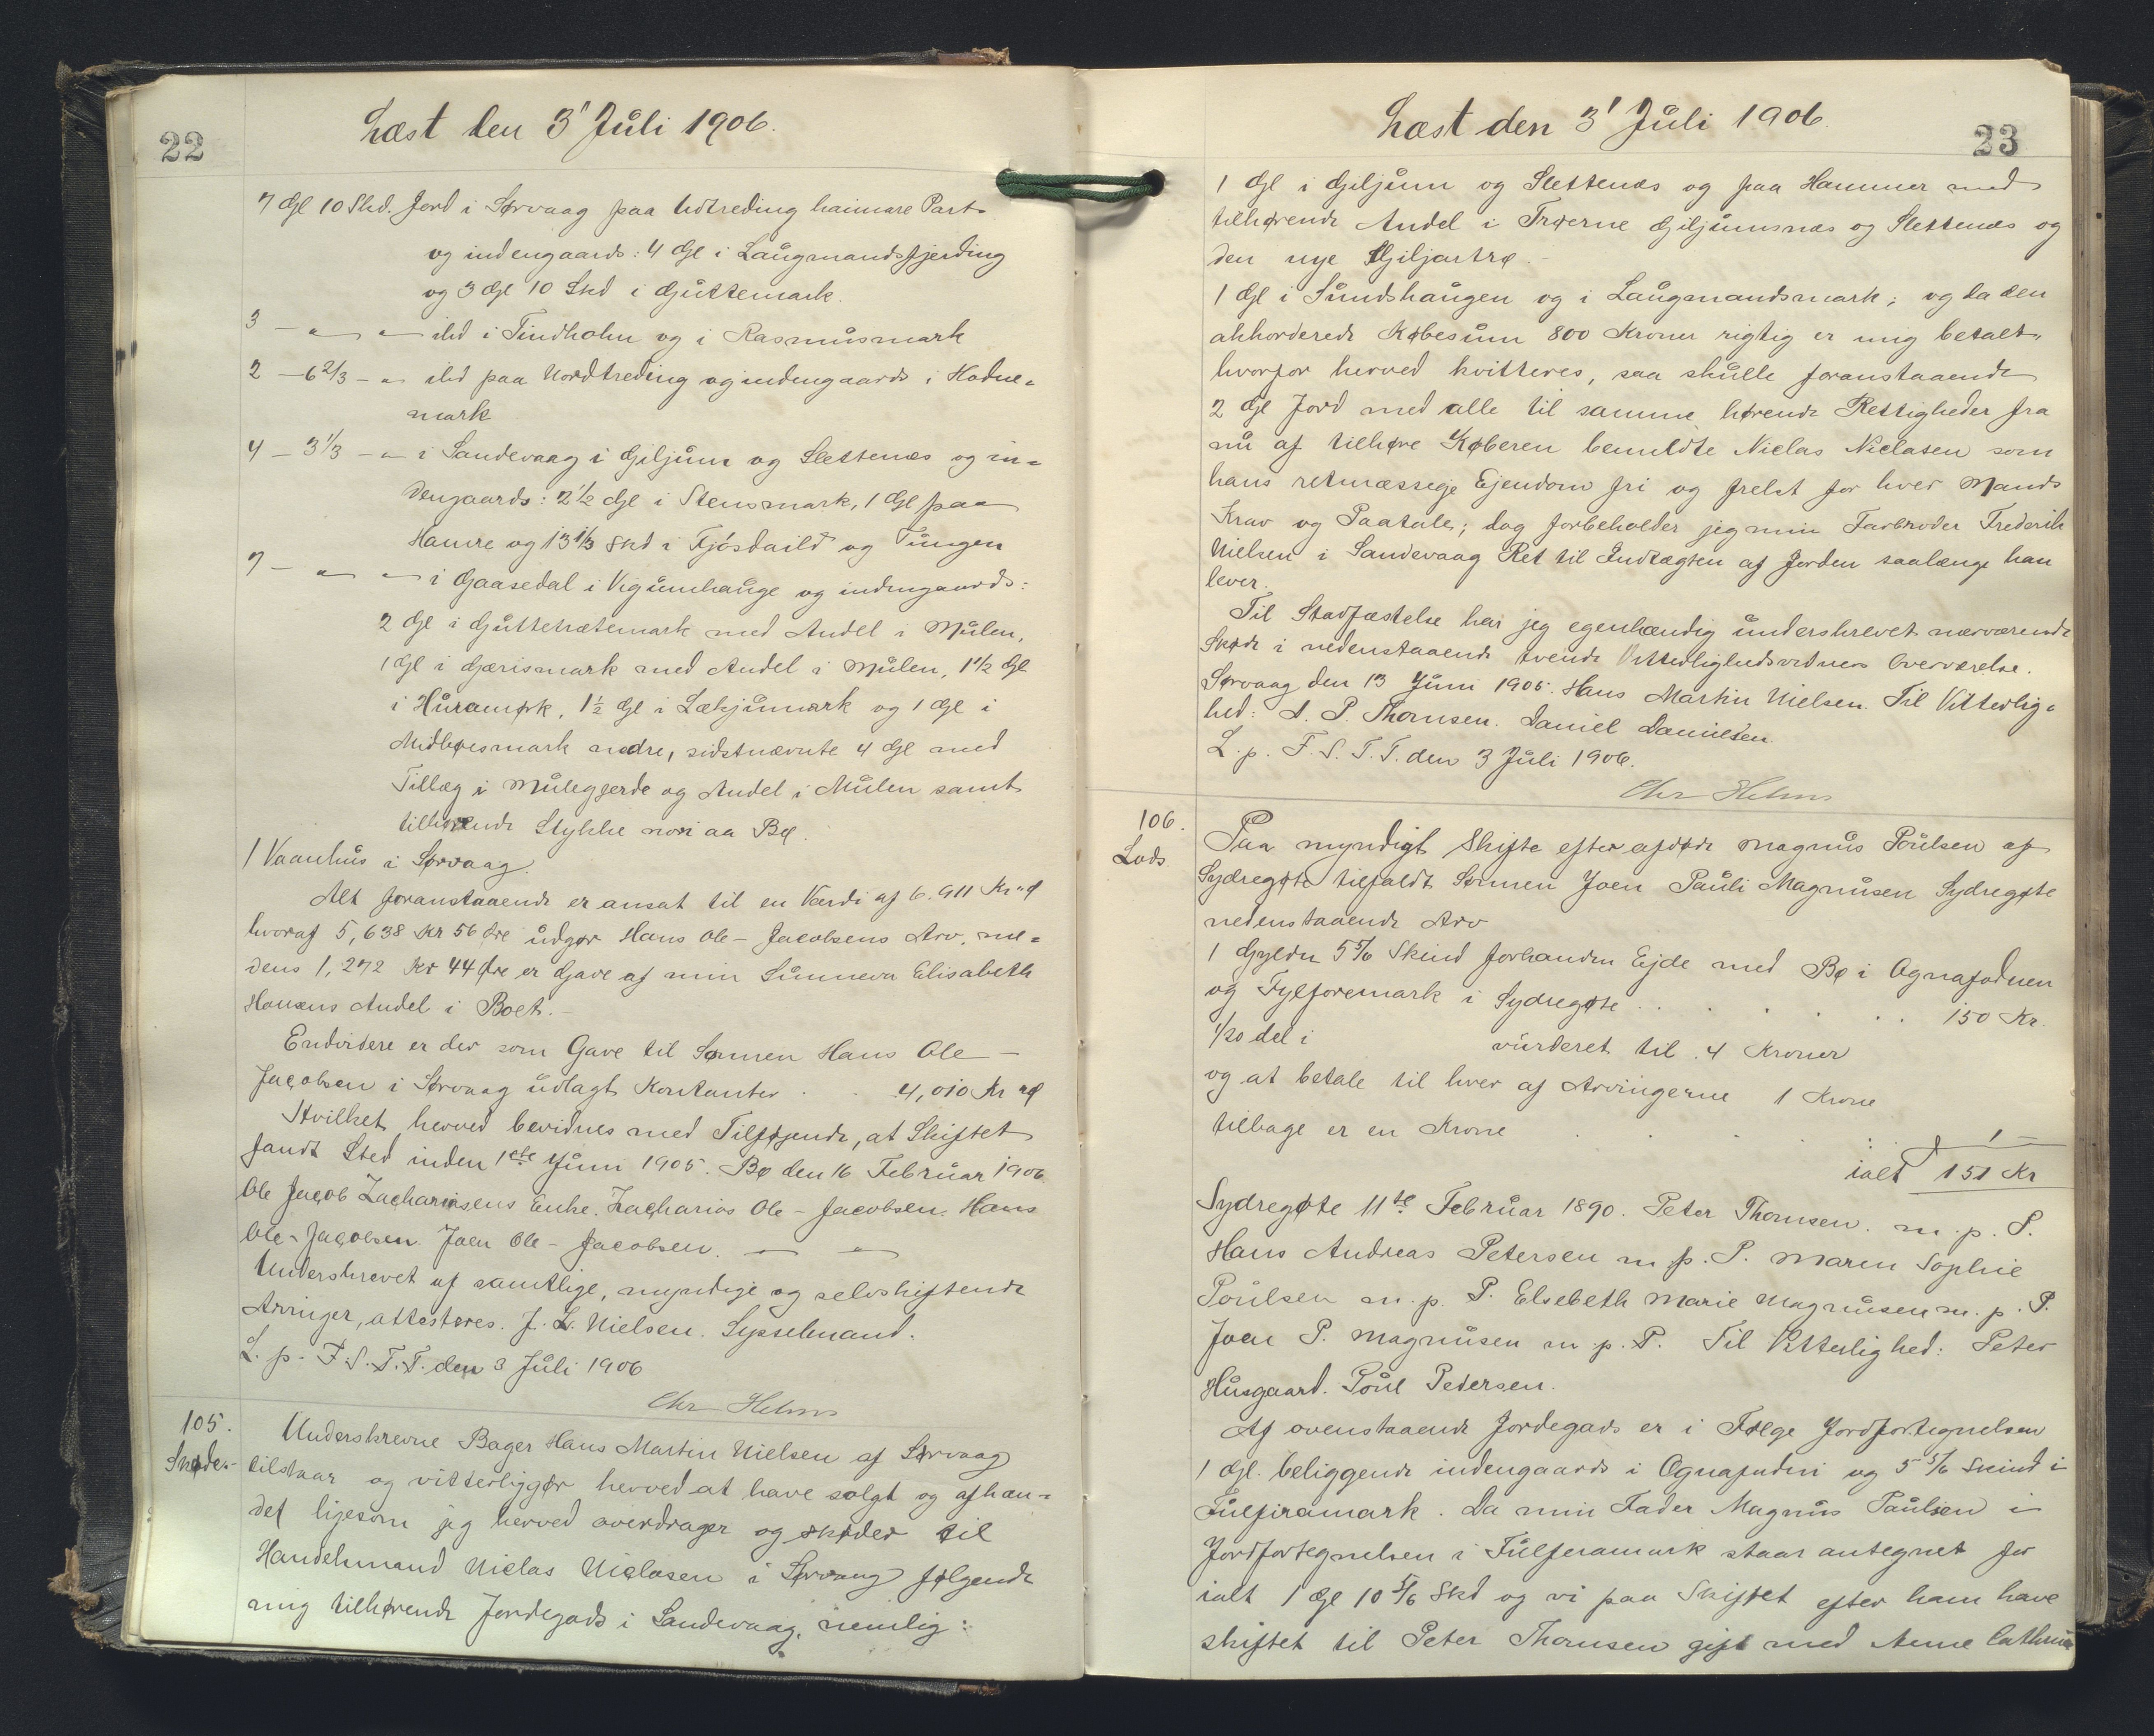 22
Læst den 3' Juli 1906.
7 Gl 10 Skd. Jord i Sørvaag paa Udtreding haimare Part
og indengaards: 4 Gl i Laugmandsfjerding
og 3 Gl 10 Skd i Guttemark.
3 — " — " — ibd i Tindholm og i Rasmusmark
2 — 6 2/3 — " ibd paa Nordtreding og indengaards i Hodne-
mark
4 — 3 1/3 — " — i Sandevaag i Giljum og Slettenæs og in-
dengaards: 2 1/2 Gl i Stensmark, 1 Gl paa
Hamre og 13 1/3 Skd i Fjósdaild og Tungen
7 — " — " — i Gaasedal i Vigumhauge og indengaards:
2 Gl i Guttetrætemark med Andel i Mulen,
1 Gl i Gærismark med Andel i Mulen, 1 1/2 Gl
i Huramørk, 1 1/2 Gl i Lækjumark og 1 Gl i
Midbøesmark nedre, sidstnævnte 4 Gl med
Tillæg i Mulegjerde og Andel i Mulen samt
tilhørende Stykke nori aa Bø.
1 Vaanhus i Sørvaag.
Alt foranstaaende er ansat til en Værdi af 6.911 Kr " Ø
hvoraf 5,638 Kr 56 Øre udgør Hans Ole-Jacobsens Arv, me-
dens 1,272 Kr 44 Øre er Gave af min Sunneva Elisabeth
Hansens Andel i Boet.-
Endvidere er der som Gave til Sønnen Hans Ole-
Jacobsen i Sørvaag udlagt Kontanter . . 4,010 Kr " Ø
Hvilket herved bevidnes med Tilføjende, at Skiftet
fandt Sted inden 1ste Juni 1905. Bø den 16 Februar 1906
Ole Jacob Zachariasens Enke. Zacharias Ole-Jacobsen. Hans
Ole-Jacobsen. Joen Ole-Jacobsen. — " —
Underskrevet af samtlige, myndige og selvskiftende
Arvinger, attesteres. J. L. Nielsen. Sysselmand.
L. p. F. S. T. T. den 3 Juli 1906
Chr Helms
105.
Skøde.-
Underskrevne Bager Hans Martin Nielsen af Sørvaag
tilstaar og vitterliggør herved at have solgt og afhæn-
det ligesom jeg herved overdrager og skøder til
Handelsmand Niclas Niclasen i Sørvaag følgende
mig tilhørende Jordegods i Sandevaag, nemlig:
23
Læst den 3' Juli 1906.
1 Gl i Giljum og Slettenæs og paa Hammer med
tilhørende Andel i Trøerne Giljumsnæs og Slettenæs og
den nye Giljartrø.-
1 Gl i Sundshaugen og i Laugmandsmark; og da den
akkorderede Købesum 800 Kroner rigtig er mig betalt,
hvorfor herved kvitteres, saa skulle foranstaaende
2 Gl Jord med alle til samme hørende Rettigheder fra
nu af tilhøre Køberen bemeldte Niclas Niclasen som
hans retmæssige Ejendom fri og frelst for hver Mands
Krav og Paatale; dog forbeholder jeg min Farbroder Frederik
Nielsen i Sandevaag Ret til Indtægten af Jorden saalænge han
lever.
Til Stadfæstelse har jeg egenhændig underskrevet nærværende
Skøde i nedenstaaende tvende Vitterlighedsvidners Overværelse.
Sørvaag den 13 Juni 1905. Hans Martin Nielsen. Til Vitterlig-
hed: A. P. Thomsen. Daniel Danielsen.
L. p. F. S. T. T. den 3 Juli 1906.
Chr Helms
106.
Lods.
Paa myndigt Skifte efter afdøde Magnus Poulsen af
Sydregøte tilfaldt Sønnen Joen Pauli Magnusen Sydregøte
nedenstaaende Arv
1 Gylden 5 5/6 Skind forhanden Ejde med Bø i Ognafodnen
og Fylforemark i Sydregøte . . . . . . 150 Kr.
1/20 del i vurderet til 4 Kroner
og at betale til hver af Arvingerne 1 Krone
tilbage er en Krone . . . . 1 —
ialt 151 Kr
Sydregøte 11te Februar 1890. Peter Thomsen. m. p. P.
Hans Andreas Petersen m. p. P. Maren Sophie
Poulsen m. p. P. Elsebeth Marie Magnusen m. p. P.
Joen P. Magnusen m. p. P. Til Vitterlighed: Peter
Husgaard. Poul Petersen.
Af ovenstaaende Jordegods er i Følge Jordfortegnelsen
1 Gl. beliggende indengaards i Ognafudni og 5 5/6 Skind i
Fulfiramark. Da min Fader Magnus Paulsen i
Jordfortegnelsen i Fulferamark staar antegnet for
ialt 1 Gl 10 5/6 Skd og vi paa Skiftet efter ham have
skiftet til Peter Thomsen gift med Anne Cathrine